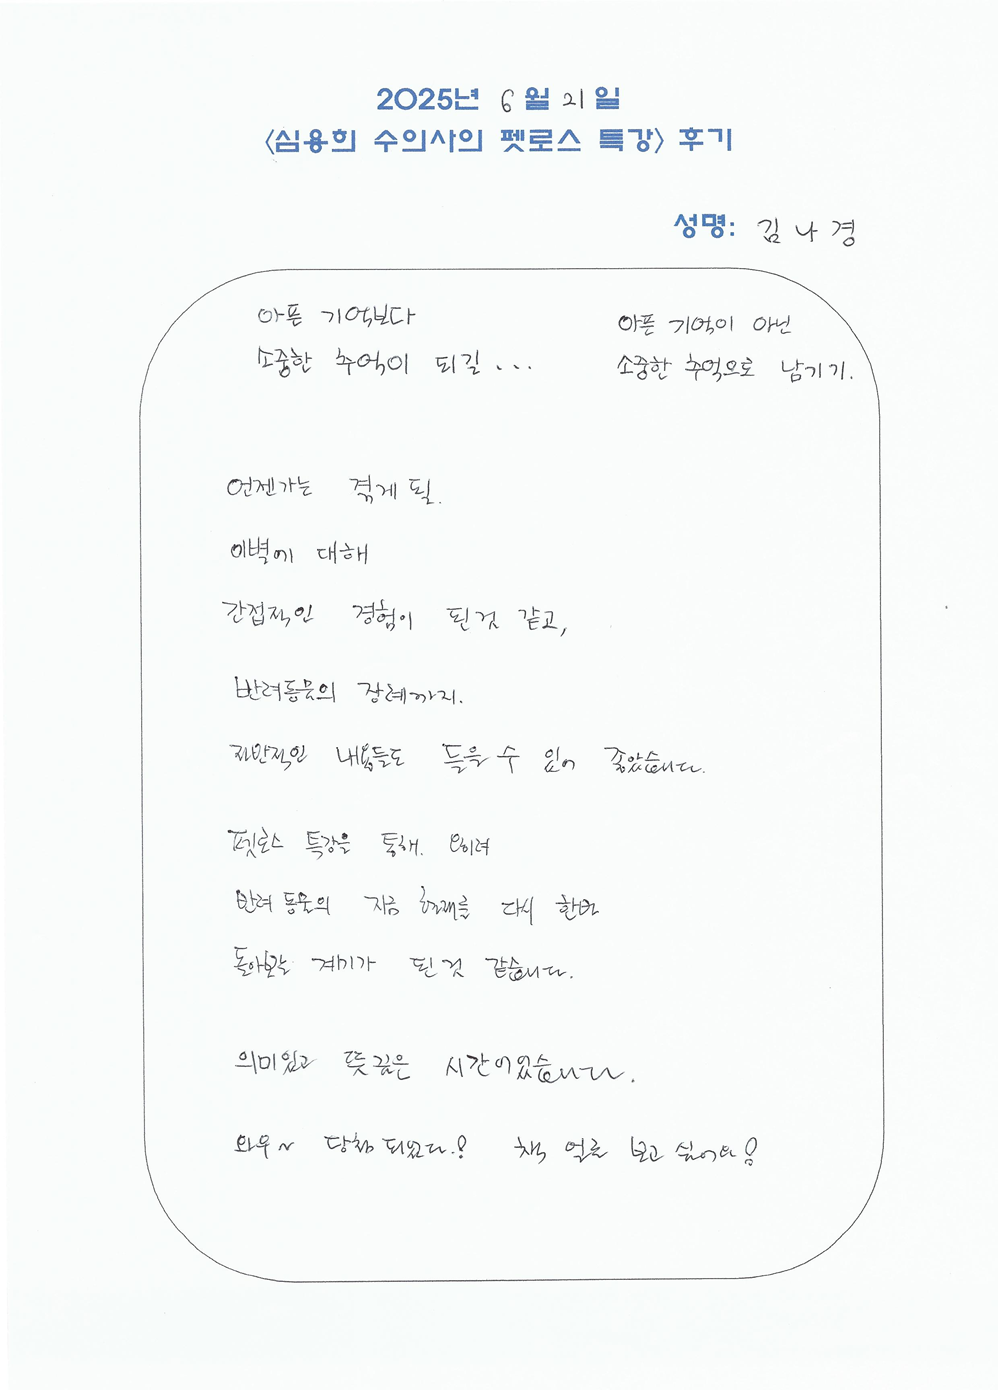 2025년 6월 21일
<심용희 수의사의 펫로스 특강> 후기
성명: 김나경
아픈 기억보다
소중한 추억이 되길...
아픈 기억이 아닌
소중한 추억으로 남기기.
언젠가는 겪게 될.
이별에 대해
간접적인 경험이 된것 같고,
반려동물의 장례까지.
전반적인 내용들도 들을 수 있어 좋았습니다.
펫로스 특강을 통해. 오히려
반려동물의 지금 현재를 다시 한번
돌아보는 계기가 된 것 같습니다.
의미있고 뜻깊은 시간이었습니다.
와우~ 당첨되었다.! 책 얼른 보고 싶어요!